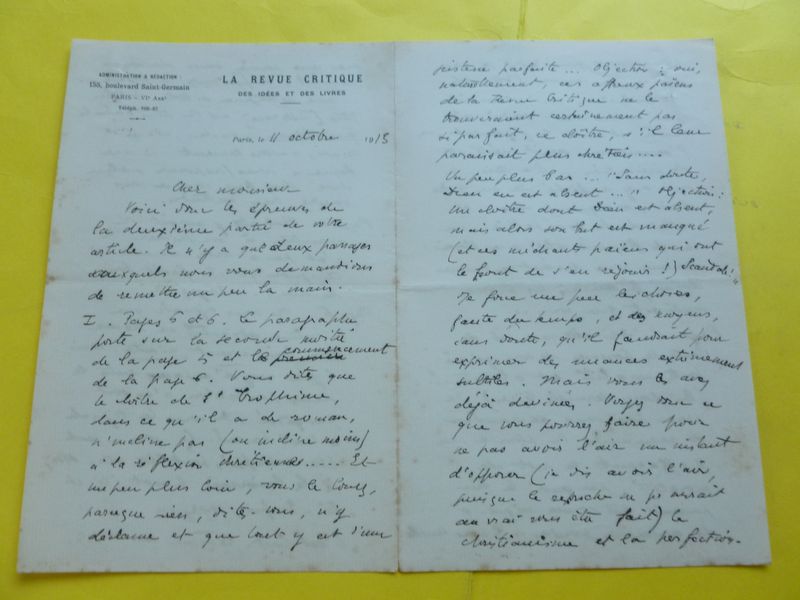 ADMINISTRATION & RÉDACTION :
155, boulevard Saint-Germain
PARIS - VIe Arrt
Téléph.
LA REVUE CRITIQUE
DES IDÉES ET DES LIVRES
Paris, le 4 octobre 1913
Cher monsieur
Voici donc les épreuves de
la deuxième partie de votre
article. Il n'y a que deux passages
auxquels nous vous demandions
de remettre un peu la main.
I. Pages 5 et 6. Le paragraphe
porte sur la seconde moitié
de la page 5 et le commencement
de la page 6. Vous dites que
le cloître de St Trophime,
dans ce qu'il a de roman,
n'incline pas (ou incline moins)
à la réflexion chrétienne ..... Et
un peu plus loin, vous le louez,
parce que rien, dites-vous, n'y
déclame et que tout y est d'une
justesse parfaite ... Objection : oui,
naturellement, ces affreux païens
de la Revue Critique ne le
trouveraient certainement pas
si parfait, ce cloître, s'il leur
paraissait plus chrétien....
Un peu plus bas ... "Sans doute,
Dieu en est absent ..." Objection :
Un cloître dont Dieu est absent,
mais alors son but est manqué
(et ces méchants païens qui ont
le front de s'en réjouir !) Scandale !"
Je force un peu les choses,
faute du temps, et des moyens,
sans doute, qu'il faudrait pour
exprimer des nuances extrêmement
subtiles. Mais vous les avez
déjà devinées. Voyez donc ce
que vous pourrez faire pour
ne pas avoir l'air un instant
d'opposer (je dis avoir l'air,
puisque le reproche ne saurait
au vrai vous être fait) le
christianisme et la perfection.